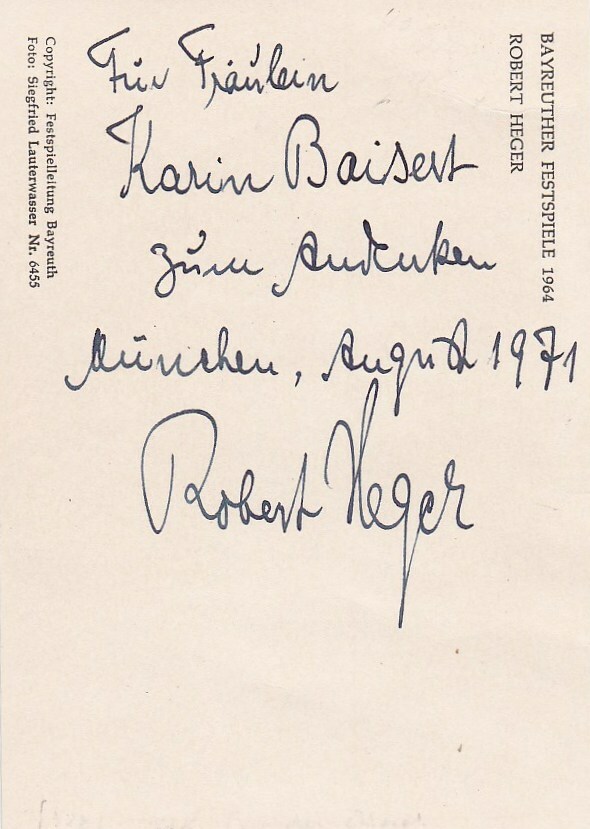 Für Fräulein
Karin Baisert
zum Andenken
München, August 1971
Robert Heger
BAYREUTHER FESTSPIELE 1964
ROBERT HEGER
Copyright: Festspielleitung Bayreuth
Foto: Siegfried Lauterwasser Nr. 6455